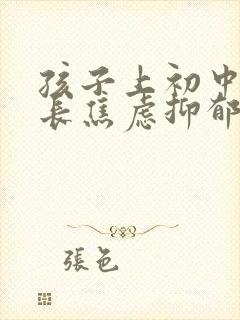 孩子上初中
长焦虑抑郁
張色